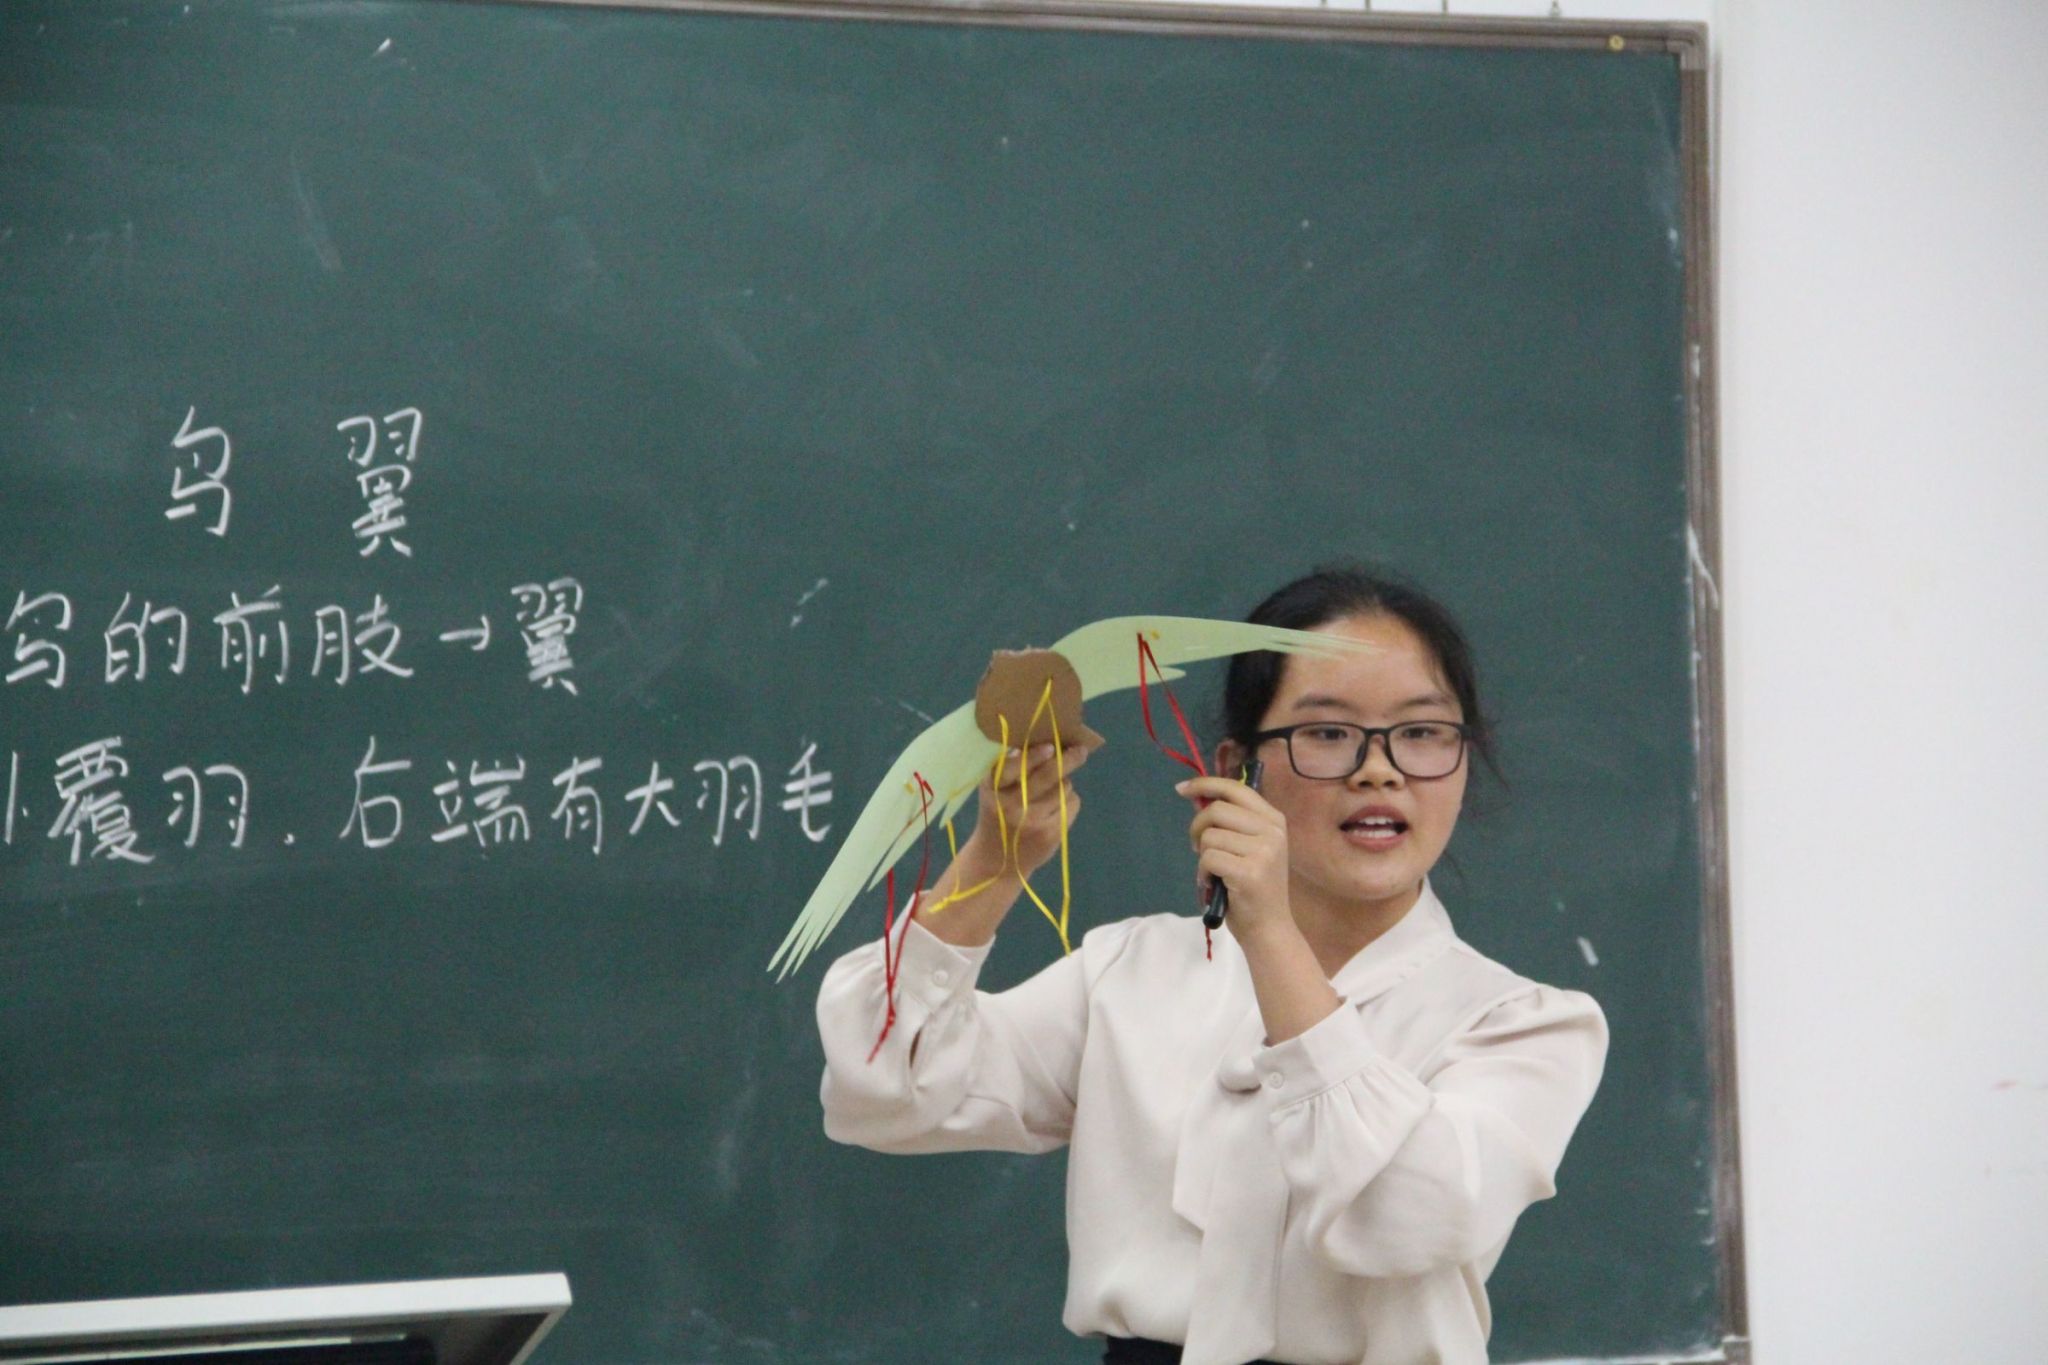 鸟 翼
鸟的前肢→翼
覆羽.右端有大羽毛